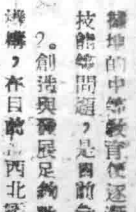 坤的中等教育便逐
技能等問題，是目前急
？。創造與發展足夠數
構，在目前西北